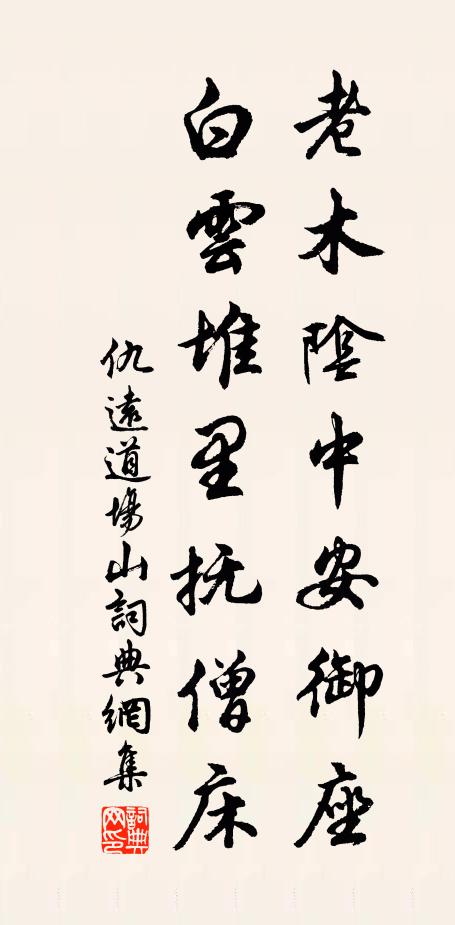 老木陰中安御座
白雲堆里抚僧床
仇遠道場山詞典網集
詞典网印